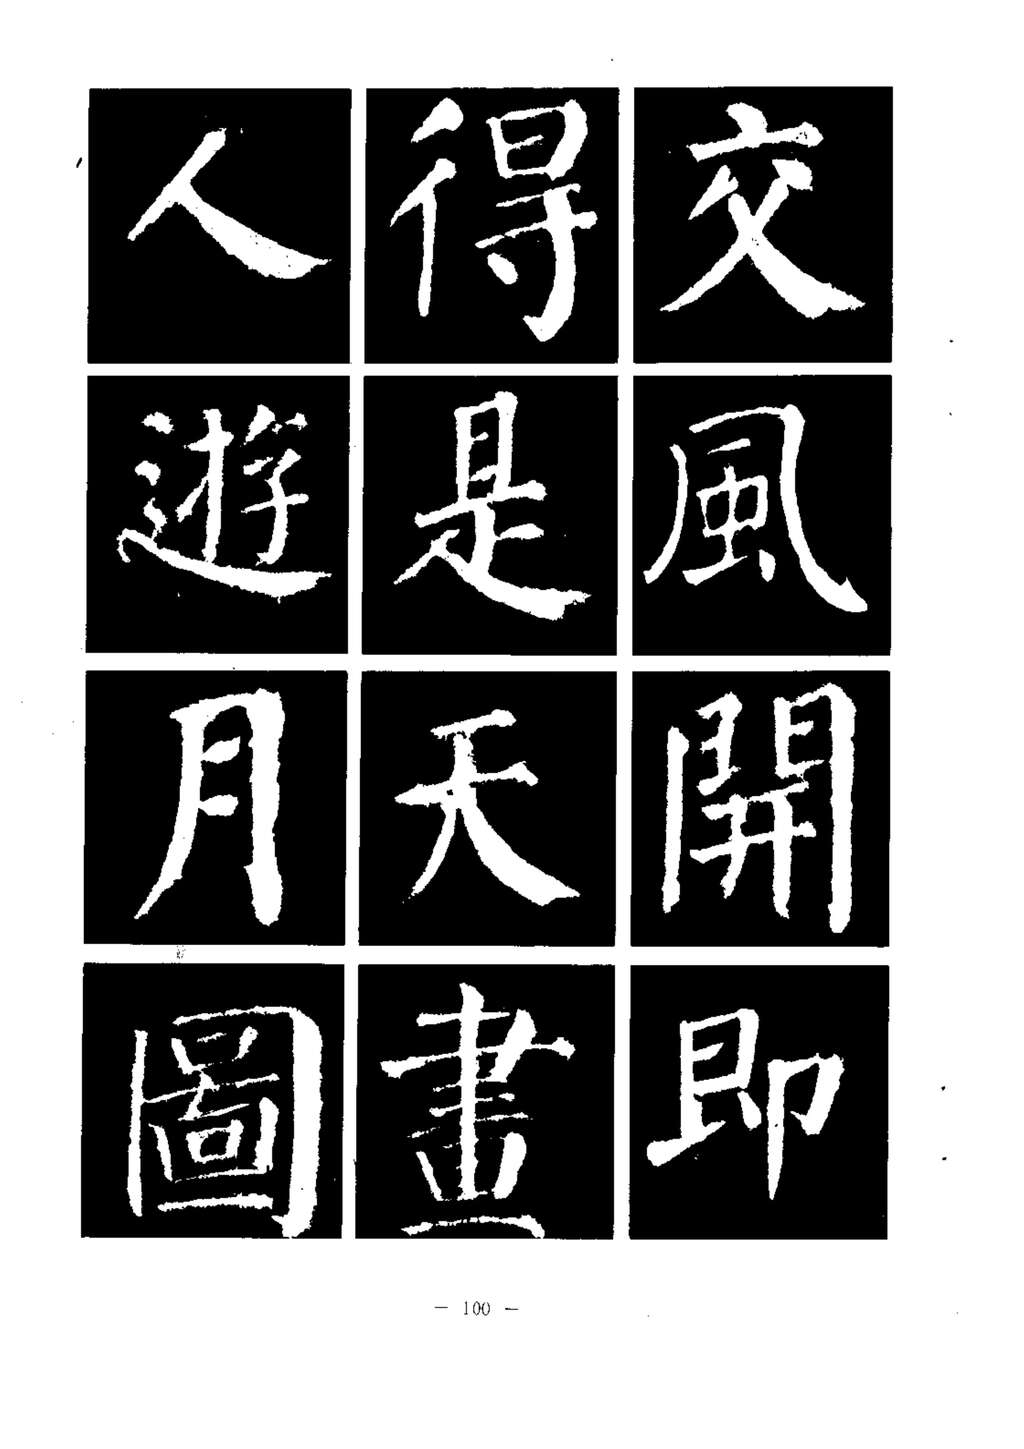 交風開即
得是天畫
人遊月圖
— 100 —